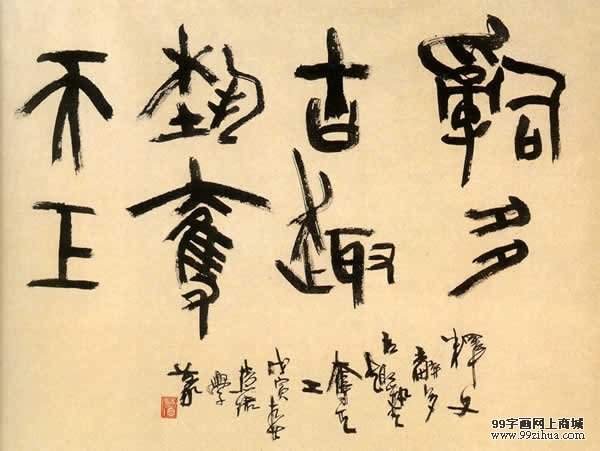 辭多
古趣
藝奪
天工
釋文
辭多
古趣藝
奪天
工
戊寅
學
篆
99字画网上商城
www.99zihua.com